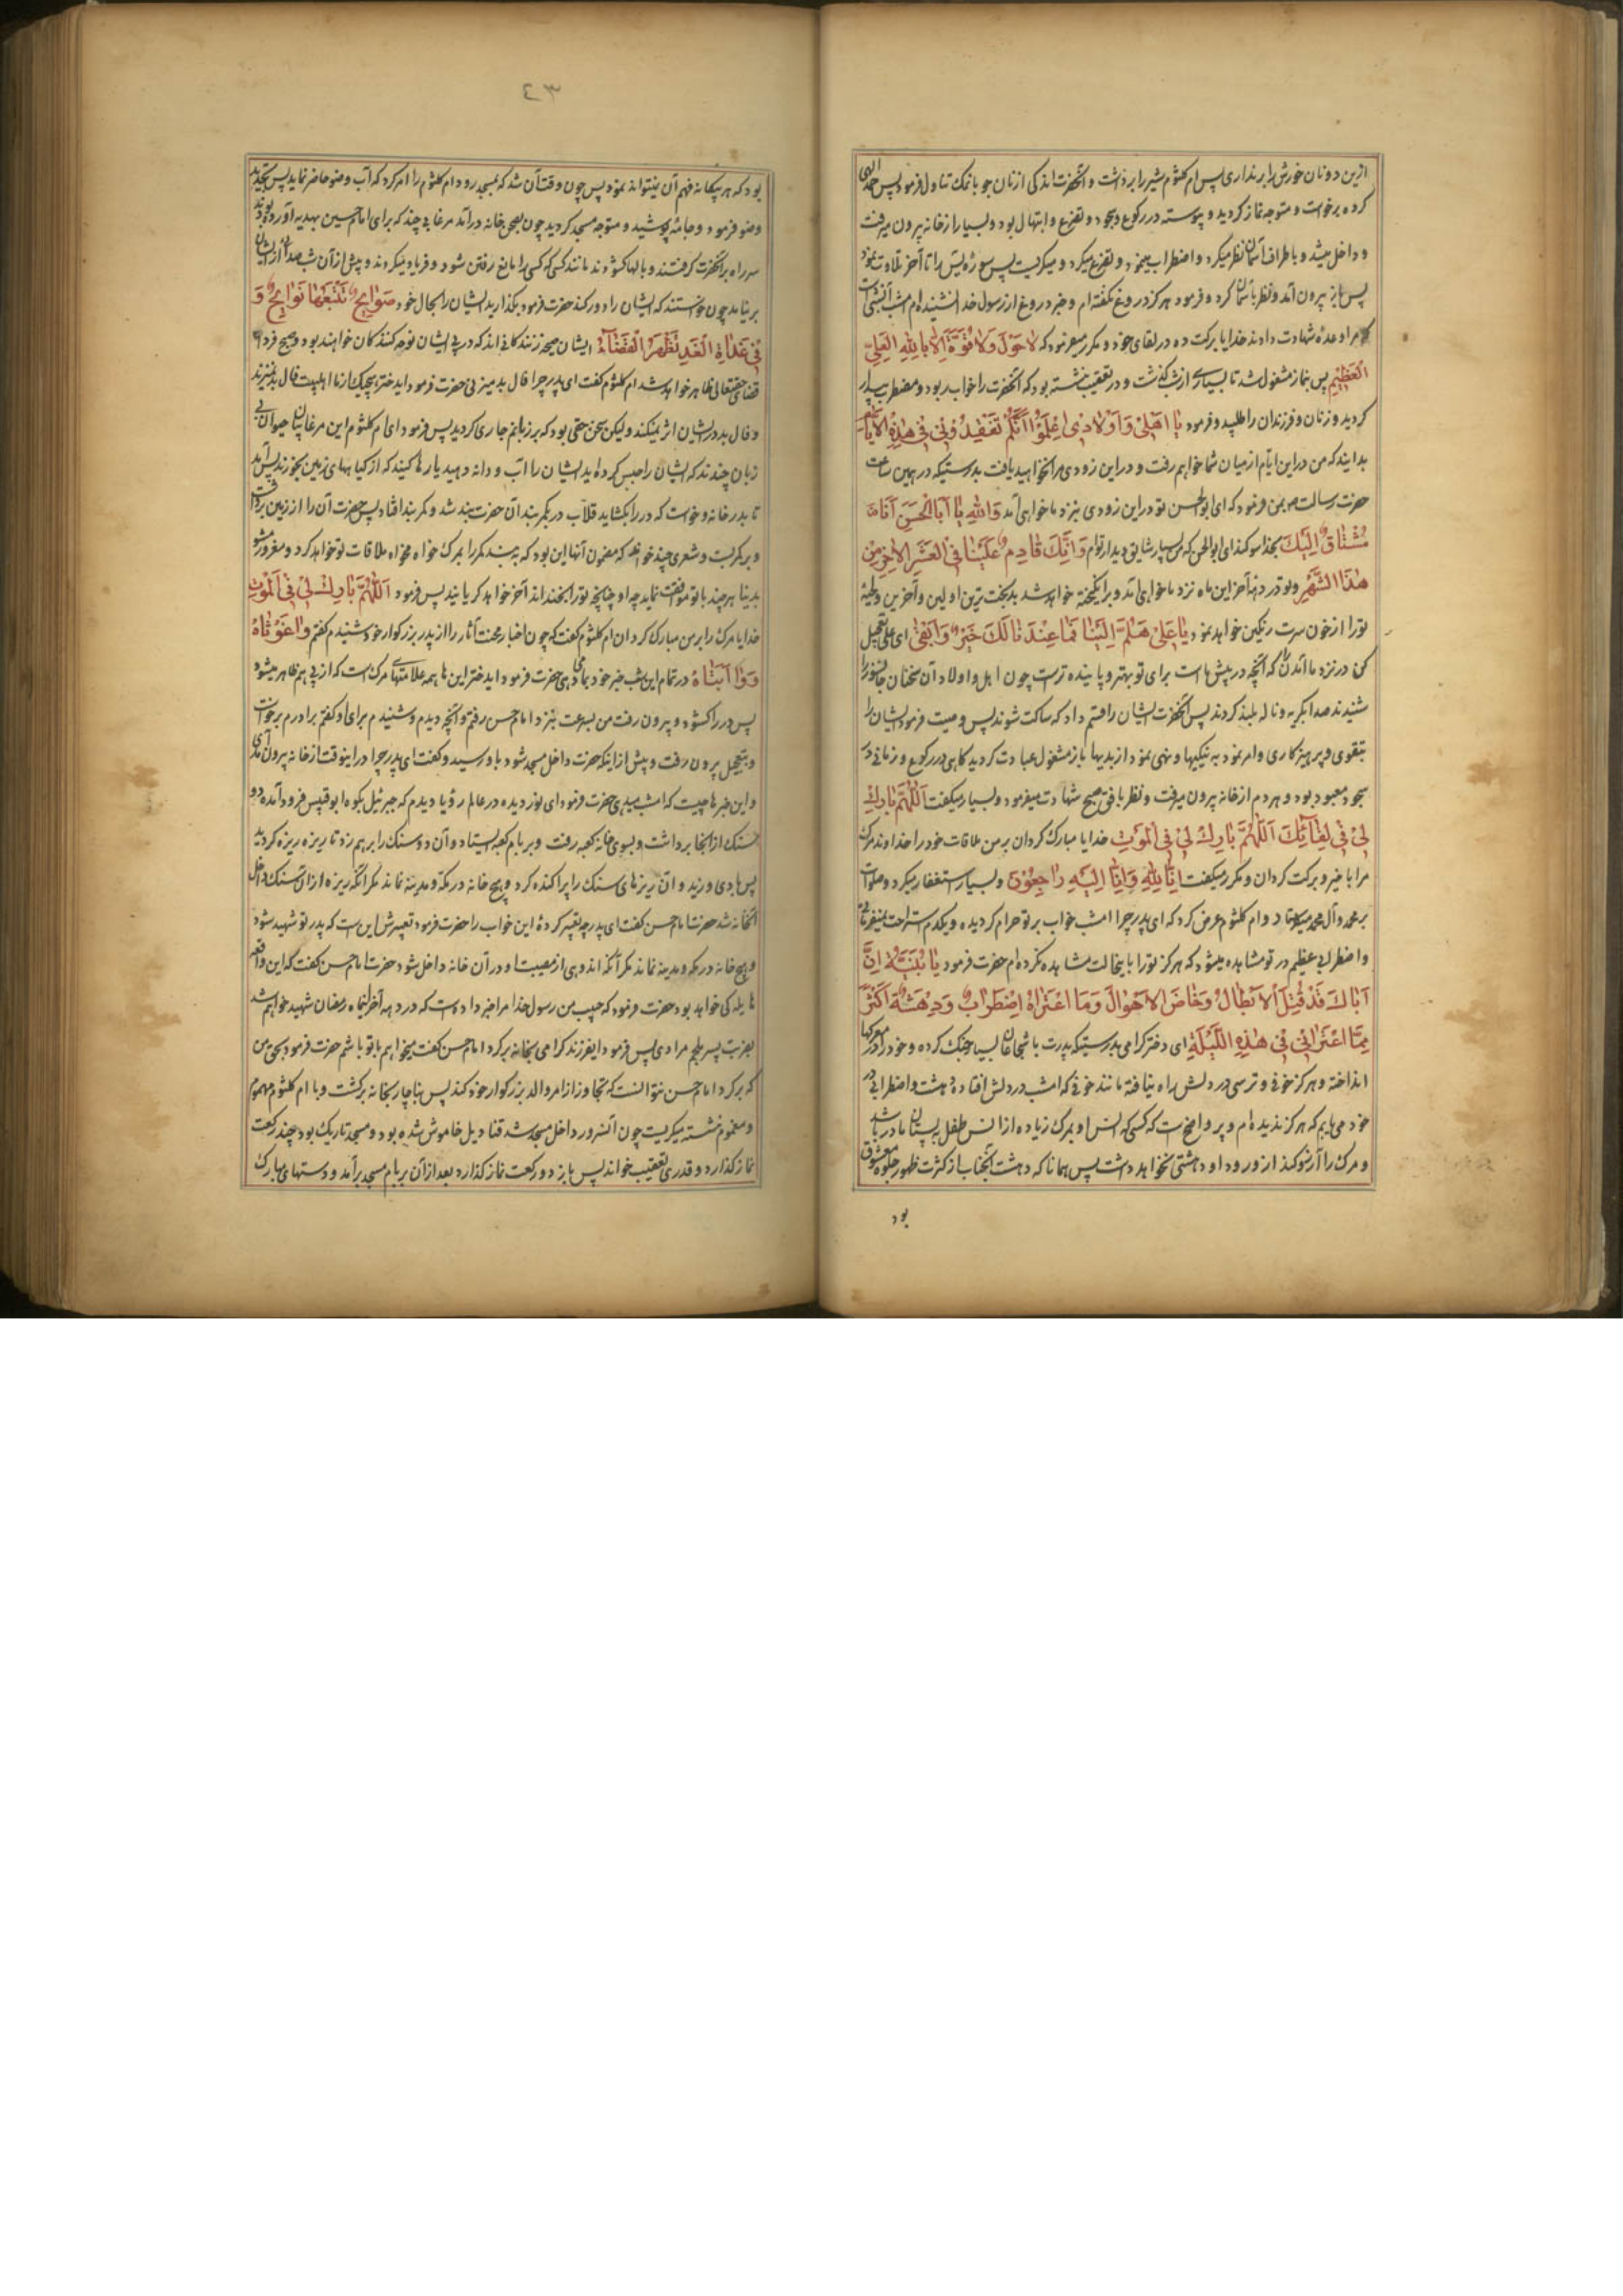 ازین دو نان خورش را برنداری پس ام کلثوم شیر را برداشت و آنحضرت اندکی از نان جو با نمک تناول فرمود پس حمد الهی
کرده برخواست و متوجه نماز کردید و پیوسته در رکوع و سجود و تضرع و ابتهال بود و بسیار از خانه بیرون میرفت
و داخل میشد و باطراف آسمان نظر میکرد و اضطراب مینمود و تضرع میکرد و میکریست پس سوره یس را تا آخر تلاوت نمود
پس باز بیرون آمد و نظر بآسمان کرد و فرمود هرکز دروغ نکفته‌ام و خبر دروغ از رسول خدا نشنیده‌ام امشب آنشبی است
که مرا وعدهٔ شهادت دادند خدایا برکت ده در لقای خود و مکرر میفرمود که لا حَوْلَ وَلا قُوَّةَ اِلّا بِاللهِ العَلِیِّ
العَظیمِ پس بنماز مشغول شد تا بسیاری از شب کذشت و در تعقیب نشسته بود که آنحضرت را خواب ربود و مضطرب بیدار
کردید و زنان و فرزندان را طلبید و فرمود یا اَهْلی وَ اَوْلادی اِعْلَمُوا اَنَّکُمْ تَفْقِدُونی فی هٰذِهِ الاَیّامِ
بدانید که من در این ایام از میان شما خواهم رفت و در این زودی مرا نخواهید یافت بدرستیکه در همین ساعت
حضرت رسالت ص بمن فرمود که ای ابوالحسن تو در این زودی بنزد ما خواهی آمد وَاللهِ یا اَبَا الحَسَنِ اَنَا
مُشْتاقٌ اِلَیْکَ بخدا سوکند ای ابوالحسن که من بسیار شایق دیدار توام وَ اِنَّکَ قادِمٌ عَلَیْنا فِی العَشْرِ الآخِرِ مِنْ
هٰذَا الشَّهْرِ و تو در دههٔ آخر این ماه نزد ما خواهی آمد و برانکیخته خواهد شد بدبخت‌ترین اولین و آخرین و لحیهٔ
تو را از خون سرت رنکین خواهد نمود یا عَلی هَلُمَّ اِلَیْنا فَما عِنْدَنا لَکَ خَیْرٌ وَ اَبْقی ای علی تعجیل
کن در نزد ما آمدن را که آنچه در پیش ما است برای تو بهتر و پاینده‌تر است چون اهل و اولاد آن سخنان جانسوز را
شنیدند صدا بکریه و ناله بلند کردند پس آنحضرت ایشان را قسم داد که ساکت شوند پس وصیت فرمود ایشان را
بتقوی و پرهیزکاری و امر نمود به نیکیها و نهی نمود از بدیها باز مشغول عبادت کردید کاهی در رکوع و زمانی در
سجود معبود بود و هر دم از خانه بیرون میرفت و نظر بافق صبح شهادت میفرمود و بسیار میکفت اَللّهُمَّ بارِکْ
لی فی لِقائِکَ اَللّهُمَّ بارِکْ لی فِی المَوْتِ خدایا مبارک کردان بر من ملاقات خود را خداوندا مرک
مرا با خیر و برکت کردان و مکرر میکفت اِنّا لِلّهِ وَ اِنّا اِلَیْهِ راجِعُونَ و بسیار استغفار میکرد و صلوات
بر محمد و آل محمد میفرستاد و ام کلثوم عرض کرد که ای پدر چرا امشب خواب بر تو حرام کردیده و یکدم استراحت نمیفرمائی
و اضطرابی عظیم در تو مشاهده میشود که هرکز تو را باینحالت مشاهده نکرده‌ام حضرت فرمود یا بُنَیَّةُ اِنَّ
اَباکِ قَدْ قَتَلَ الاَبْطالَ وَ خاضَ الاَهْوالَ وَ مَا اعْتَراهُ اضْطِرابٌ وَ دِهْشَةٌ اَکْثَرُ
مِمَّا اعْتَرانی فی هٰذِهِ اللَّیْلَةِ ای دختر کرامی بدرستیکه پدرت با شجاعان بسیار جنک کرده و خود را در معرکها
انداخته و هرکز خوفی و ترسی در دلش راه نیافته مانند خوفی که امشب در دلش افتاده دهشت و اضطرابی در
خود می‌یابم که هرکز ندیده‌ام و پر واضح است که کسی که انس او بمرک زیاده از انس طفل به پستان مادر باشد
و مرک را آرزو کند از ورود او دهشتی نخواهد داشت پس همانا که دهشت آنجناب از کثرت ظهور جلوه معشوق
بود
٤٣
بود که هر بیکانه فهم آن نمیتواند نمود پس چون وقت آن شد که بمسجد رود ام کلثوم را امر کرد که آب وضو حاضر نماید پس تجدید
وضو فرمود و جامه پوشید و متوجه مسجد کردید چون بصحن خانه درآمد مرغابی چند که برای امام حسین بهدیه آورده بودند
سر راه بر آنحضرت کرفتند و بالها کشودند مانند کسی که کسی را مانع رفتن شود و فریاد میکردند و پیش از آن شب صدائی از ایشان
برنیامد چون خواستند که ایشان را دور کنند حضرت فرمود بکذارید ایشان را بحال خود صَوایِحُ تَتْبَعُها نَوایِحُ وَ
فی غَداةِ الغَدِ تَظْهَرُ القَضاءُ ایشان صیحه زنندکانی‌اند که در پی ایشان نوحه کنندکان خواهند بود و صبح فردا
قضای حقتعالی ظاهر خواهد شد ام کلثوم کفت ای پدر چرا فال بد میزنی حضرت فرمود ایدختر هیچیک از ما اهلبیت فال بد نمیزند
و فال بد در ایشان اثر نمیکند ولیکن سخن حقی بود که بر زبانم جاری کردید پس فرمود ای ام کلثوم این مرغان حیوان بی
زبان چندند که ایشان را حبس کرده‌اید ایشان را آب و دانه دهید یا رها کنید که از کیاههای زمین بخورند پس آمد
تا بدر خانه و خواست که در را بکشاید قلاب در بکمربند آن حضرت بند شد و کمربند افتاد پس حضرت آن را از زمین برداشت
و بر کمر بست و شعری چند خواند که مضمون آنها این بود که به بند کمر را بمرک خواه مخواه ملاقات تو خواهد کرد و مغرور مشو
بدنیا هر چند با تو موافقت نماید چه او چنانچه تو را بخنداند آخر خواهد کریانید پس فرمود اَللّهُمَّ بارِکْ لی فِی المَوْتِ
خدایا مرک را بر من مبارک کردان ام کلثوم کفت که چون اخبار محنت آثار را از پدر بزرکوار خود شنیدم کفتم واغَوْثاهُ
وَ وا اَبَتاهُ در تمام این شب خبر خود بما میدهی حضرت فرمود ایدختر اینها همه علامتهای مرک است که از پی هم ظاهر میشود
پس در را کشود و بیرون رفت من بسرعت بنزد امام حسن رفتم و آنچه دیدم و شنیدم برای او کفتم برادرم برخواست
و بتعجیل بیرون رفت و پیش از اینکه حضرت داخل مسجد شود باو رسید و کفت ای پدر چرا در اینوقت از خانه بیرون آمدی
و این خبرها چیست که امشب میدهی حضرت فرمود ای نور دیده در عالم رؤیا دیدم که جبرئیل بکوه ابوقبیس فرود آمده دو
سنک از آنجا برداشت و بسوی خانه کعبه رفت و بر بام کعبه ایستاد و آن دو سنک را بر هم زد تا ریزه ریزه کردید
پس بادی وزید و آن ریزهای سنک را پراکنده کرد و هیچ خانه در مکه و مدینه نماند مکر آنکه ریزه از آن سنک داخل
آنخانه شد حضرت امام حسن کفت ای پدر چه تعبیر کردهٔ این خواب را حضرت فرمود تعبیرش این است که پدر تو شهید شود
و هیچ خانه در مکه و مدینه نماند مکر آنکه اندوهی از مصیبت او در آن خانه داخل شود حضرت امام حسن کفت که این واقعه
هایله کی خواهد بود حضرت فرمود که حبیب من رسول خدا مرا خبر داده است که در دهه آخر اینماه رمضان شهید خواهم شد
بضربت پسر ملجم مرادی پس فرمود ایفرزند کرامی بخانه برکرد امام حسن کفت میخواهم با تو باشم حضرت فرمود بحق من
که برکرد امام حسن نتوانست که تجاوز از امر والد بزرکوار خود کند پس بناچار بخانه برکشت و با ام کلثوم مهموم
و مغموم نشسته میکریست چون آنسرور داخل مسجد شد قنادیل خاموش شده بود و مسجد تاریک بود چند رکعت
نماز کذارد و قدری تعقیب خواند پس باز دو رکعت نماز کذارد بعد از آن بر بام مسجد برآمد و دستهای مبارک